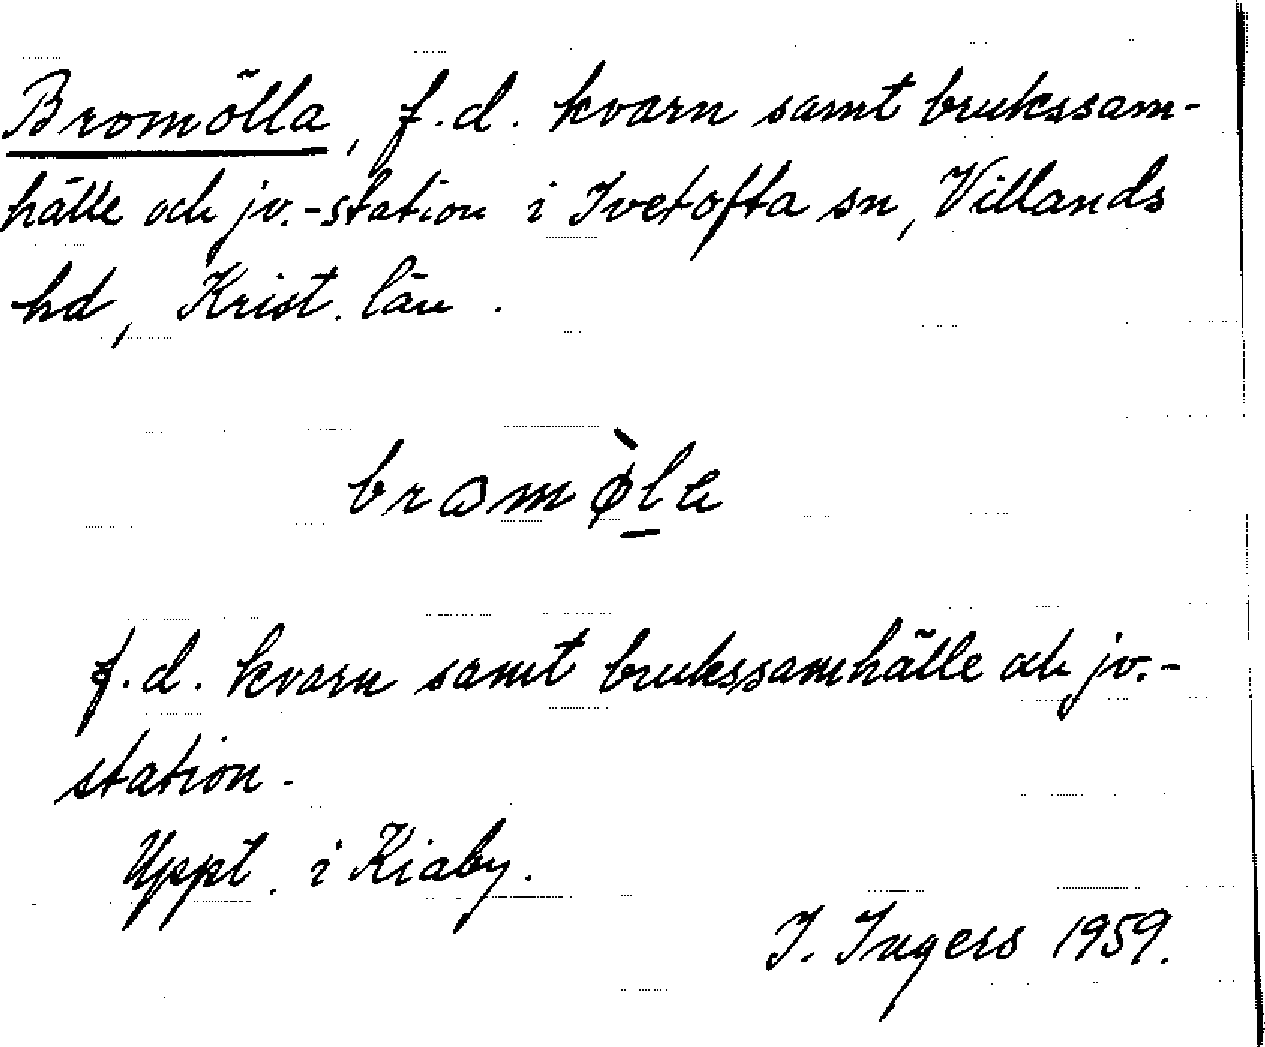 Bromölla, f.d. kvarn samt brukssam-
hälle och jv.-station i Ivetofta sn, Villands
hd, Krist. län.
bromø̀la
f.d. kvarn samt brukssamhälle och jv.-
station.
Uppt. i Kiaby.
I. Ingers 1959.